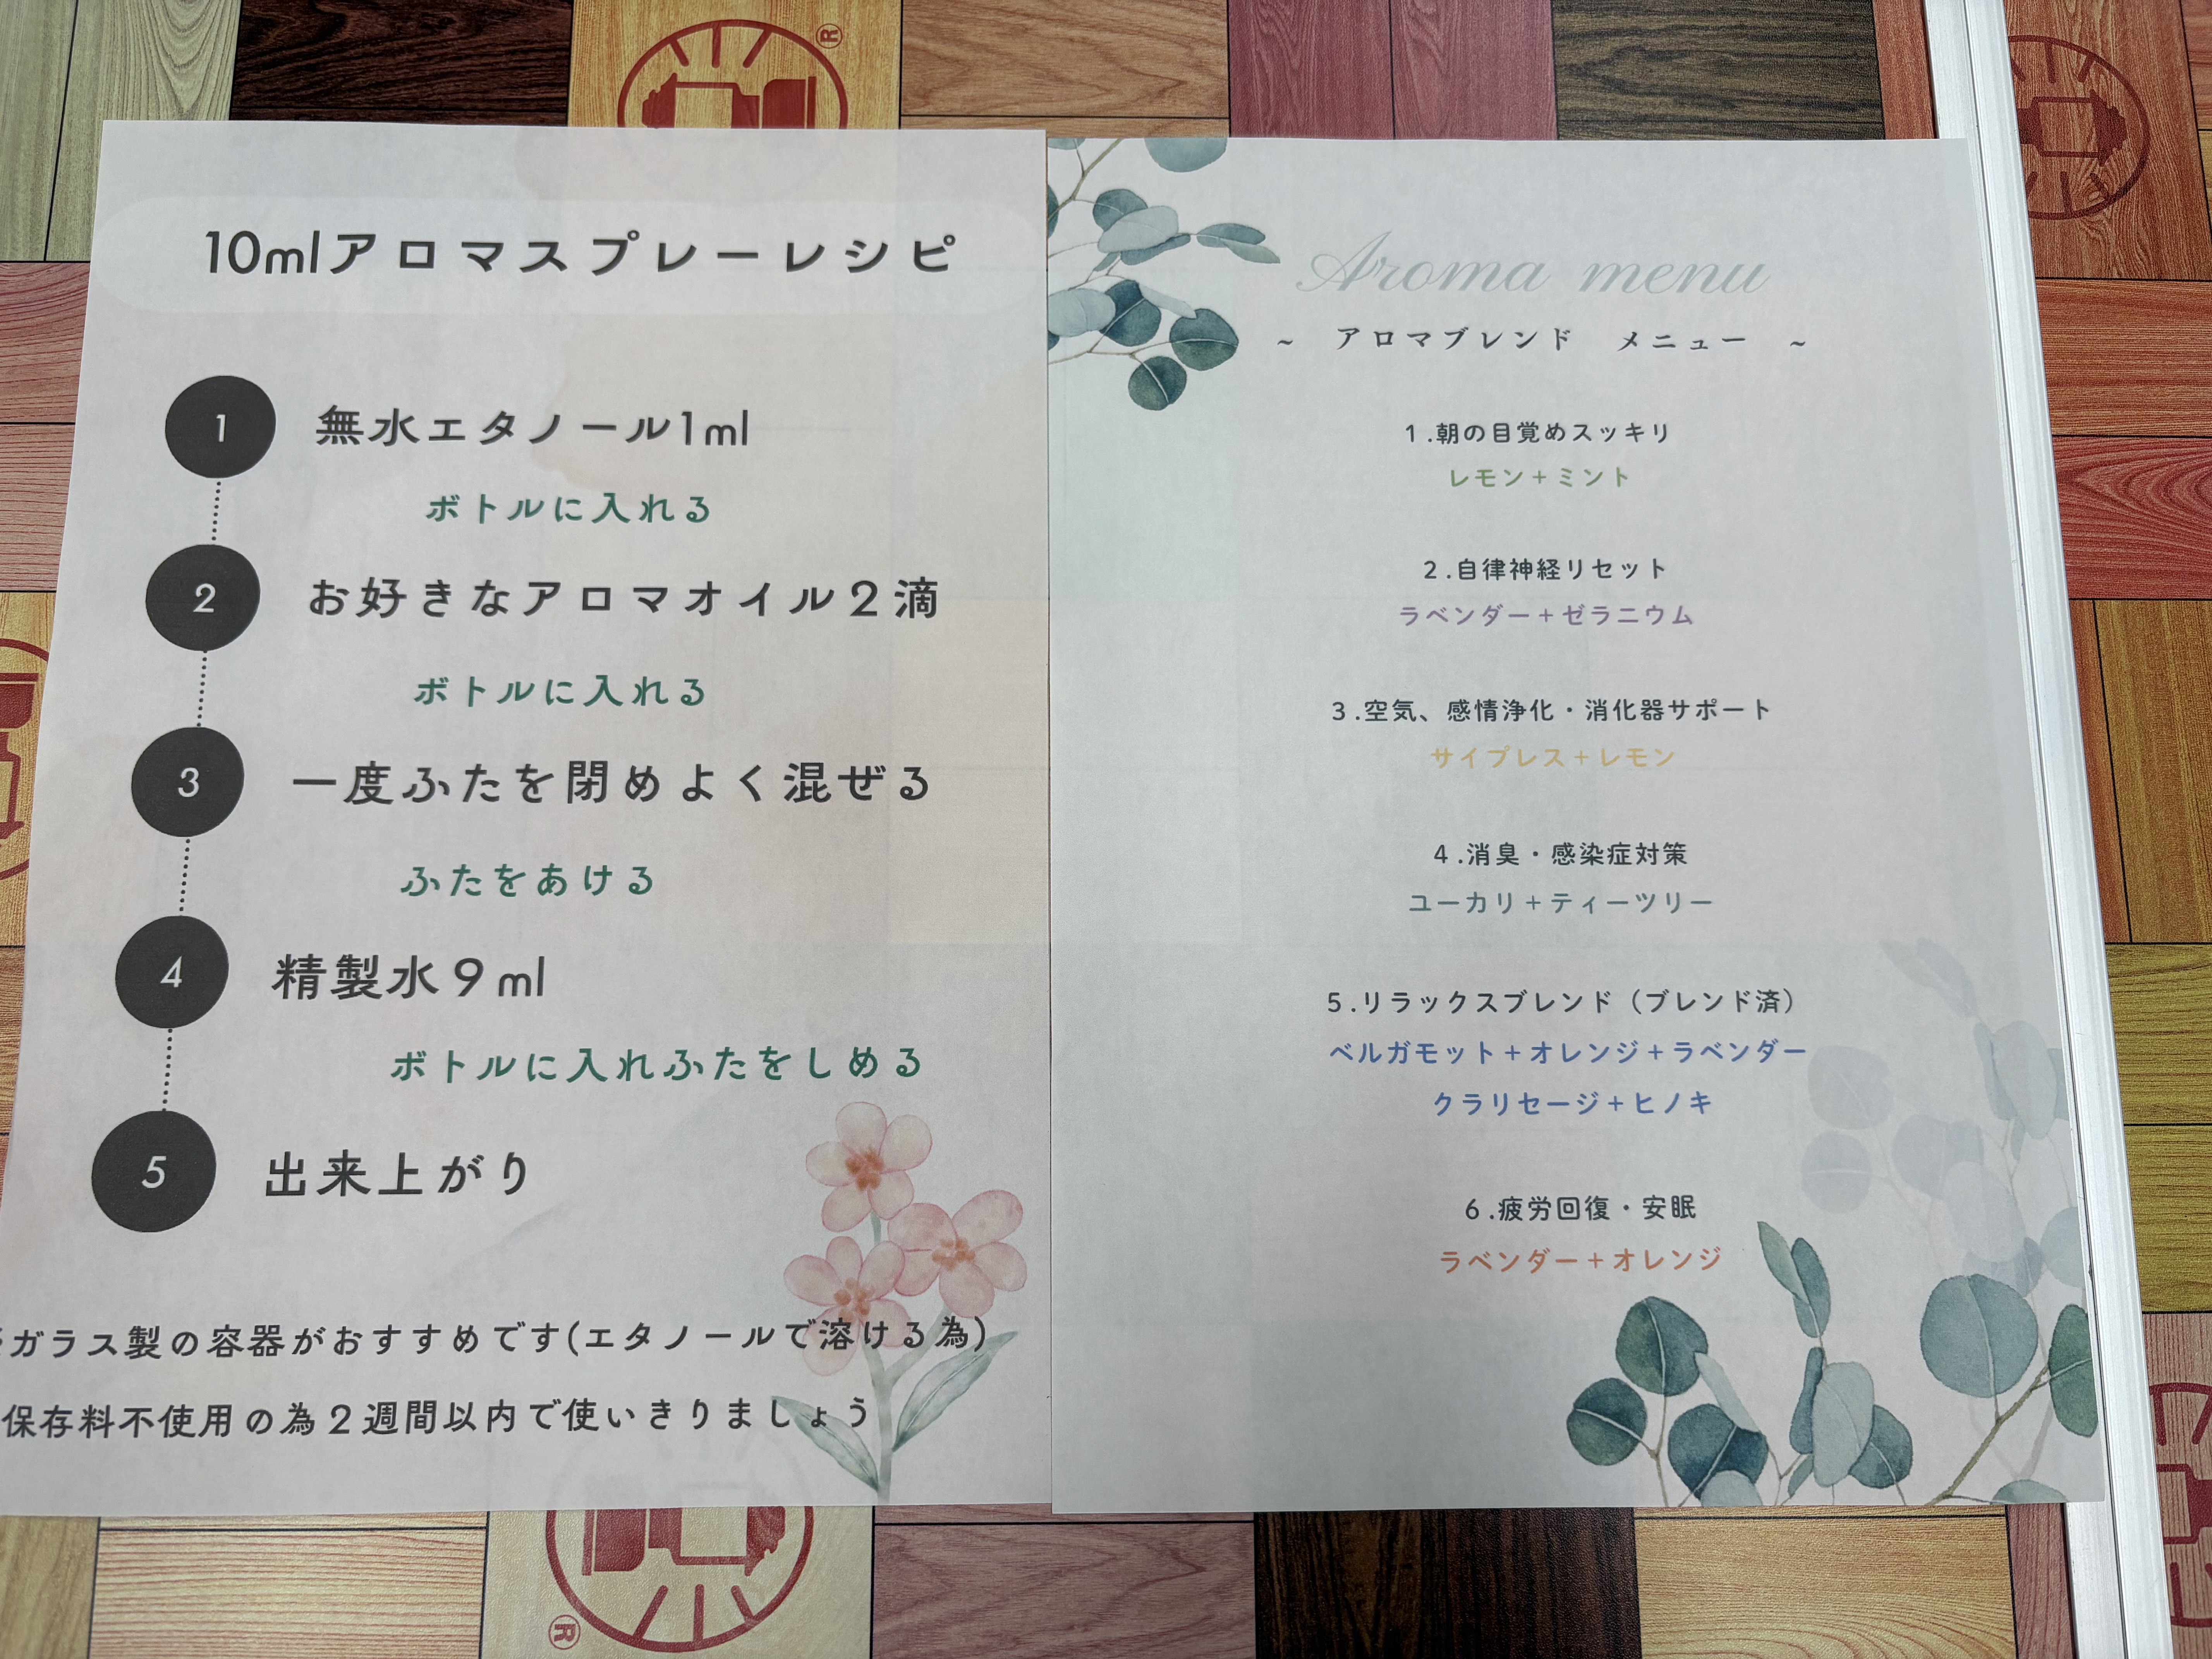 10mlアロマスプレーレシピ
1 無水エタノール1ml
ボトルに入れる
2 お好きなアロマオイル2滴
ボトルに入れる
3 一度ふたを閉めよく混ぜる
ふたをあける
4 精製水9ml
ボトルに入れふたをしめる
5 出来上がり
ガラス製の容器がおすすめです(エタノールで溶ける為)
保存料不使用の為2週間以内で使いきりましょう
Aroma menu
~ アロマブレンド メニュー ~
1.朝の目覚めスッキリ
レモン+ミント
2.自律神経リセット
ラベンダー+ゼラニウム
3.空気、感情浄化・消化器サポート
サイプレス+レモン
4.消臭・感染症対策
ユーカリ+ティーツリー
5.リラックスブレンド（ブレンド済）
ベルガモット+オレンジ+ラベンダー
クラリセージ+ヒノキ
6.疲労回復・安眠
ラベンダー+オレンジ
®
®